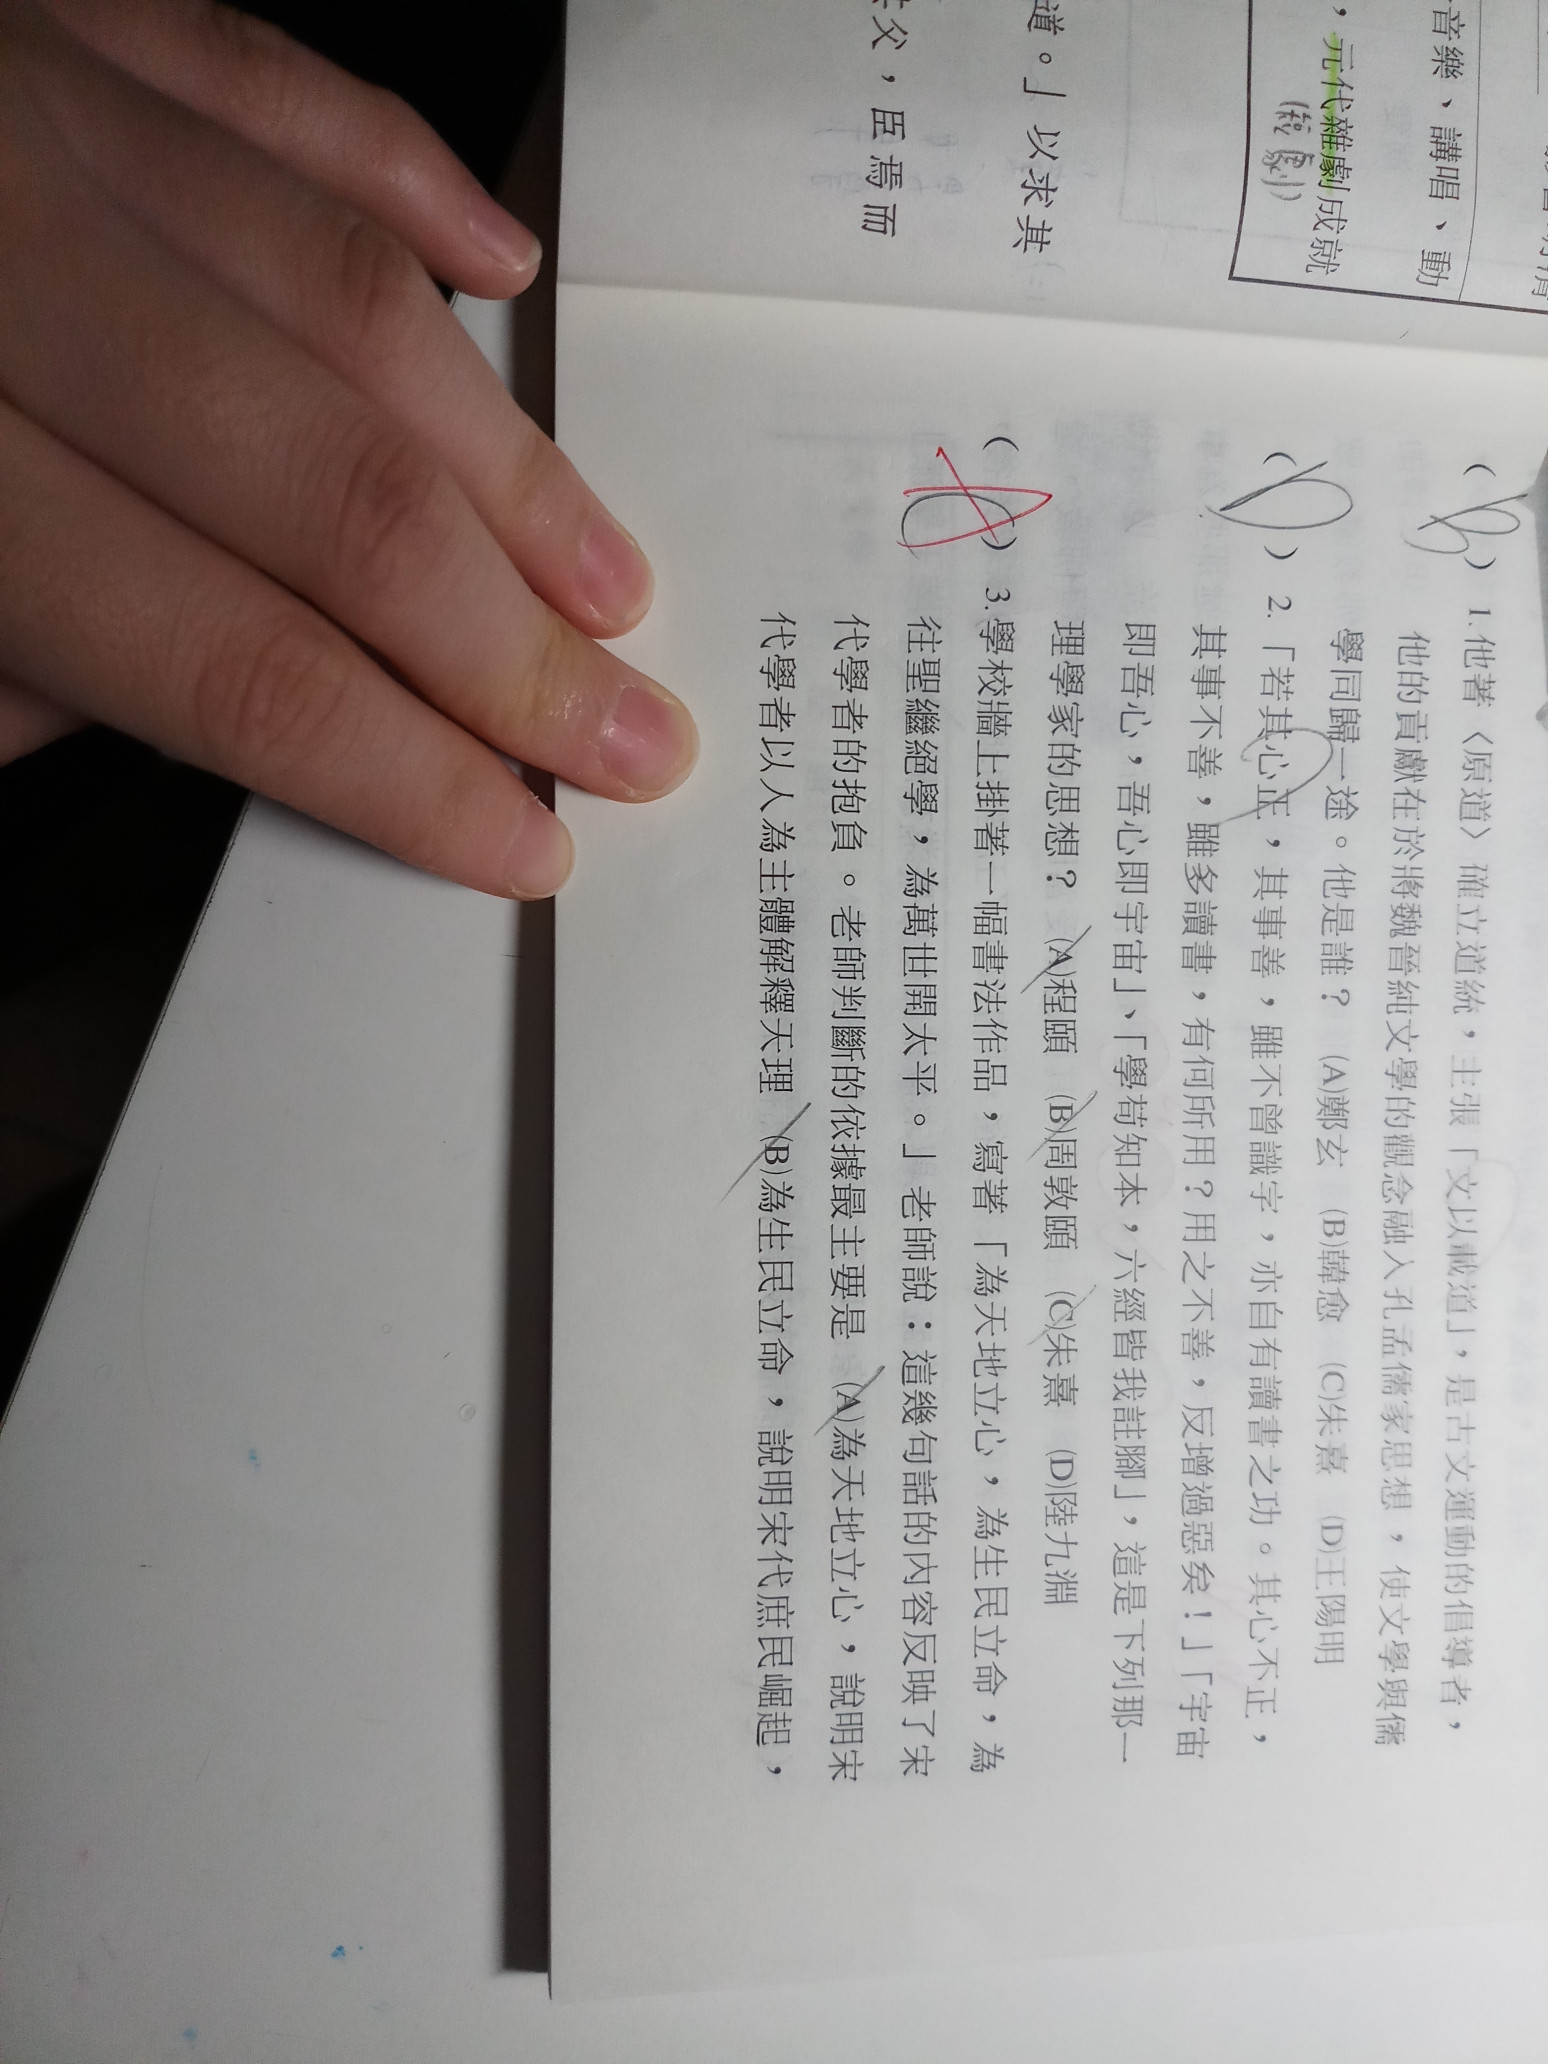 音樂、講唱、動
，元代雜劇成就
(短劇)
道。」以求其
父，臣焉而
(B) 1.他著〈原道〉確立道統，主張「文以載道」，是古文運動的倡導者，
他的貢獻在於將魏晉純文學的觀念融入孔孟儒家思想，使文學與儒
學同歸一途。他是誰？ (A)鄭玄 (B)韓愈 (C)朱熹 (D)王陽明
(D) 2.「若其心正，其事善，雖不曾識字，亦自有讀書之功。其心不正，
其事不善，雖多讀書，有何所用？用之不善，反增過惡矣！」「宇宙
即吾心，吾心即宇宙」、「學苟知本，六經皆我註腳」，這是下列那一
理學家的思想？ (A)程頤 (B)周敦頤 (C)朱熹 (D)陸九淵
( ) 3.學校牆上掛著一幅書法作品，寫著「為天地立心，為生民立命，為
往聖繼絕學，為萬世開太平。」老師說：這幾句話的內容反映了宋
代學者的抱負。老師判斷的依據最主要是 (A)為天地立心，說明宋
代學者以人為主體解釋天理 (B)為生民立命，說明宋代庶民崛起，